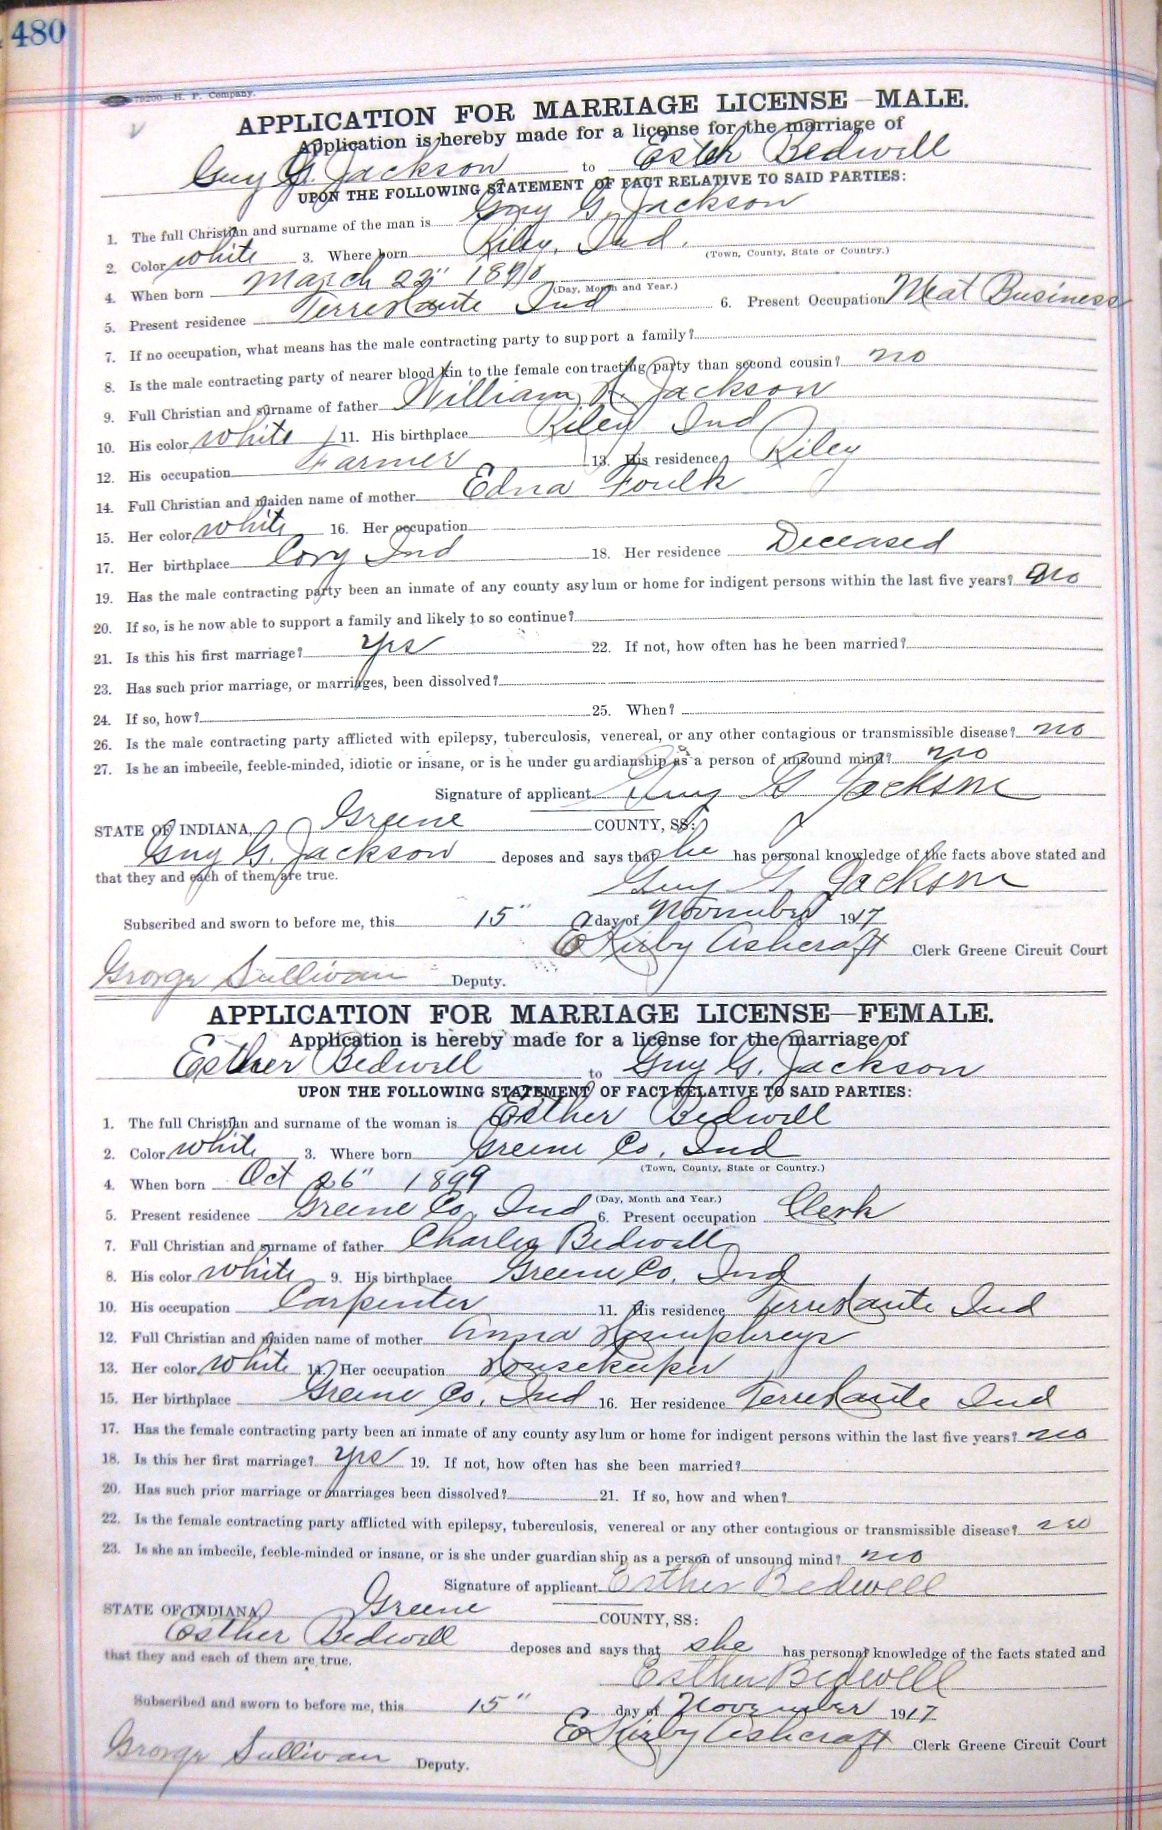 480
79200—H. P. Company.
APPLICATION FOR MARRIAGE LICENSE—MALE.
Application is hereby made for a license for the marriage of
Guy G. Jackson to Esteh Bedwell
UPON THE FOLLOWING STATEMENT OF FACT RELATIVE TO SAID PARTIES:
1. The full Christian and surname of the man is Guy G. Jackson
2. Color white 3. Where born Riley, Ind.
(Town, County, State or Country.)
4. When born March 22"
(Day, Month and Year.)
5. Present residence Terre Haute Ind 6. Present Occupation Meat Business
7. If no occupation, what means has the male contracting party to support a family?
8. Is the male contracting party of nearer blood kin to the female contracting party than second cousin? no
9. Full Christian and surname of father William Jackson
10. His color white 11. His birthplace Riley Ind
12. His occupation Farmer 13. His residence Riley
14. Full Christian and maiden name of mother Edna Foulk
15. Her color white 16. Her occupation
17. Her birthplace Cory Ind 18. Her residence Deceased
19. Has the male contracting party been an inmate of any county asylum or home for indigent persons within the last five years? no
20. If so, is he now able to support a family and likely to so continue?
21. Is this his first marriage? yes 22. If not, how often has he been married?
23. Has such prior marriage, or marriages, been dissolved?
24. If so, how? 25. When?
26. Is the male contracting party afflicted with epilepsy, tuberculosis, venereal, or any other contagious or transmissible disease? no
27. Is he an imbecile, feeble-minded, idiotic or insane, or is he under guardianship as a person of unsound mind? no
Signature of applicant Guy G Jackson
STATE OF INDIANA, Greene COUNTY, SS:
Guy G. Jackson deposes and says that he has personal knowledge of the facts above stated and
that they and each of them are true.
Guy G. Jackson
Subscribed and sworn to before me, this 15" day of November 1917
E Kirby Ashcraft Clerk Greene Circuit Court
George Sullivan Deputy.
APPLICATION FOR MARRIAGE LICENSE—FEMALE.
Application is hereby made for a license for the marriage of
Esther Bedwell to Guy G. Jackson
UPON THE FOLLOWING STATEMENT OF FACT RELATIVE TO SAID PARTIES:
1. The full Christian and surname of the woman is Esther Bedwell
2. Color white 3. Where born Greene Co, Ind
(Town, County, State or Country.)
4. When born Oct 26" 1899
(Day, Month and Year.)
5. Present residence Greene Co, Ind 6. Present occupation Clerk
7. Full Christian and surname of father Charlie Bedwell
8. His color white 9. His birthplace Greene Co, Ind
10. His occupation Carpenter 11. His residence Terre Haute Ind
12. Full Christian and maiden name of mother Anna Humphreys
13. Her color white 14. Her occupation Housekeeper
15. Her birthplace Greene Co, Ind 16. Her residence Terre Haute Ind
17. Has the female contracting party been an inmate of any county asylum or home for indigent persons within the last five years? no
18. Is this her first marriage? yes 19. If not, how often has she been married?
20. Has such prior marriage or marriages been dissolved? 21. If so, how and when?
22. Is the female contracting party afflicted with epilepsy, tuberculosis, venereal or any other contagious or transmissible disease? no
23. Is she an imbecile, feeble-minded or insane, or is she under guardianship as a person of unsound mind? no
Signature of applicant Esther Bedwell
STATE OF INDIANA, Greene COUNTY, SS:
Esther Bedwell deposes and says that she has personal knowledge of the facts stated and
that they and each of them are true.
Esther Bedwell
Subscribed and sworn to before me, this 15" day of November 1917
E Kirby Ashcraft Clerk Greene Circuit Court
George Sullivan Deputy.